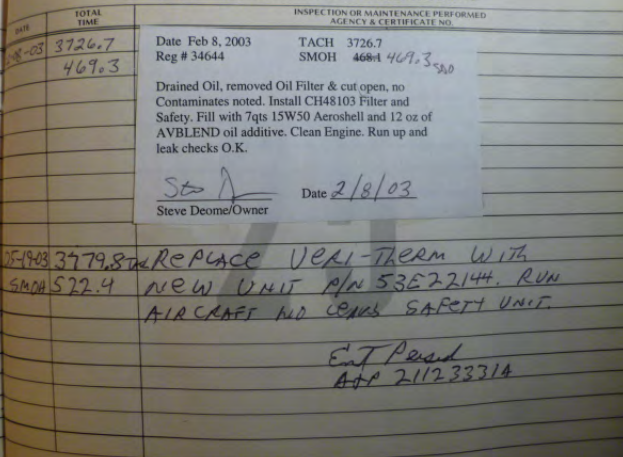 DATE TOTAL TIME INSPECTION OR MAINTENANCE PERFORMED AGENCY & CERTIFICATE NO.
-08-03 3726.7
469.3
Date Feb 8, 2003 TACH 3726.7
Reg # 34644 SMOH 468.1 469.3
Drained Oil, removed Oil Filter & cut open, no
Contaminates noted. Install CH48103 Filter and
Safety. Fill with 7qts 15W50 Aeroshell and 12 oz of
AVBLEND oil additive. Clean Engine. Run up and
leak checks O.K.
Date 2/8/03
Steve Deome/Owner
05-19-03 3779.8 REPLACE VERI-THERM WITH
SMOH 522.4 NEW UNIT P/N 53E22144. RUN
AIRCRAFT NO LEAKS SAFETY UNIT.
A&P 211233314